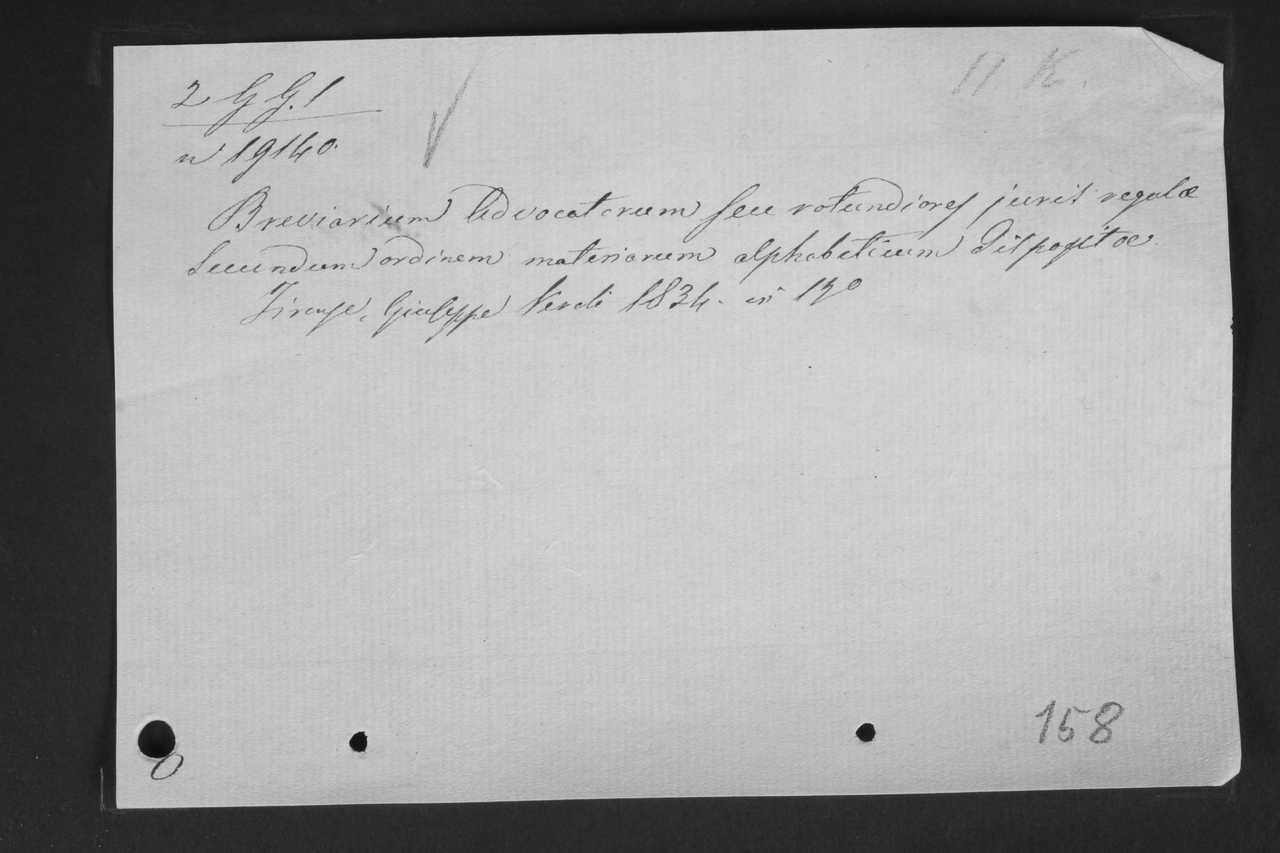 2 G G. 1
n 19140.
Breviarium Advocatorum seu rotundiores juris regulæ
secundum ordinem materiarum alphabeticum dispositæ.
Firenze, Giuseppe Verdi 1834. in
158